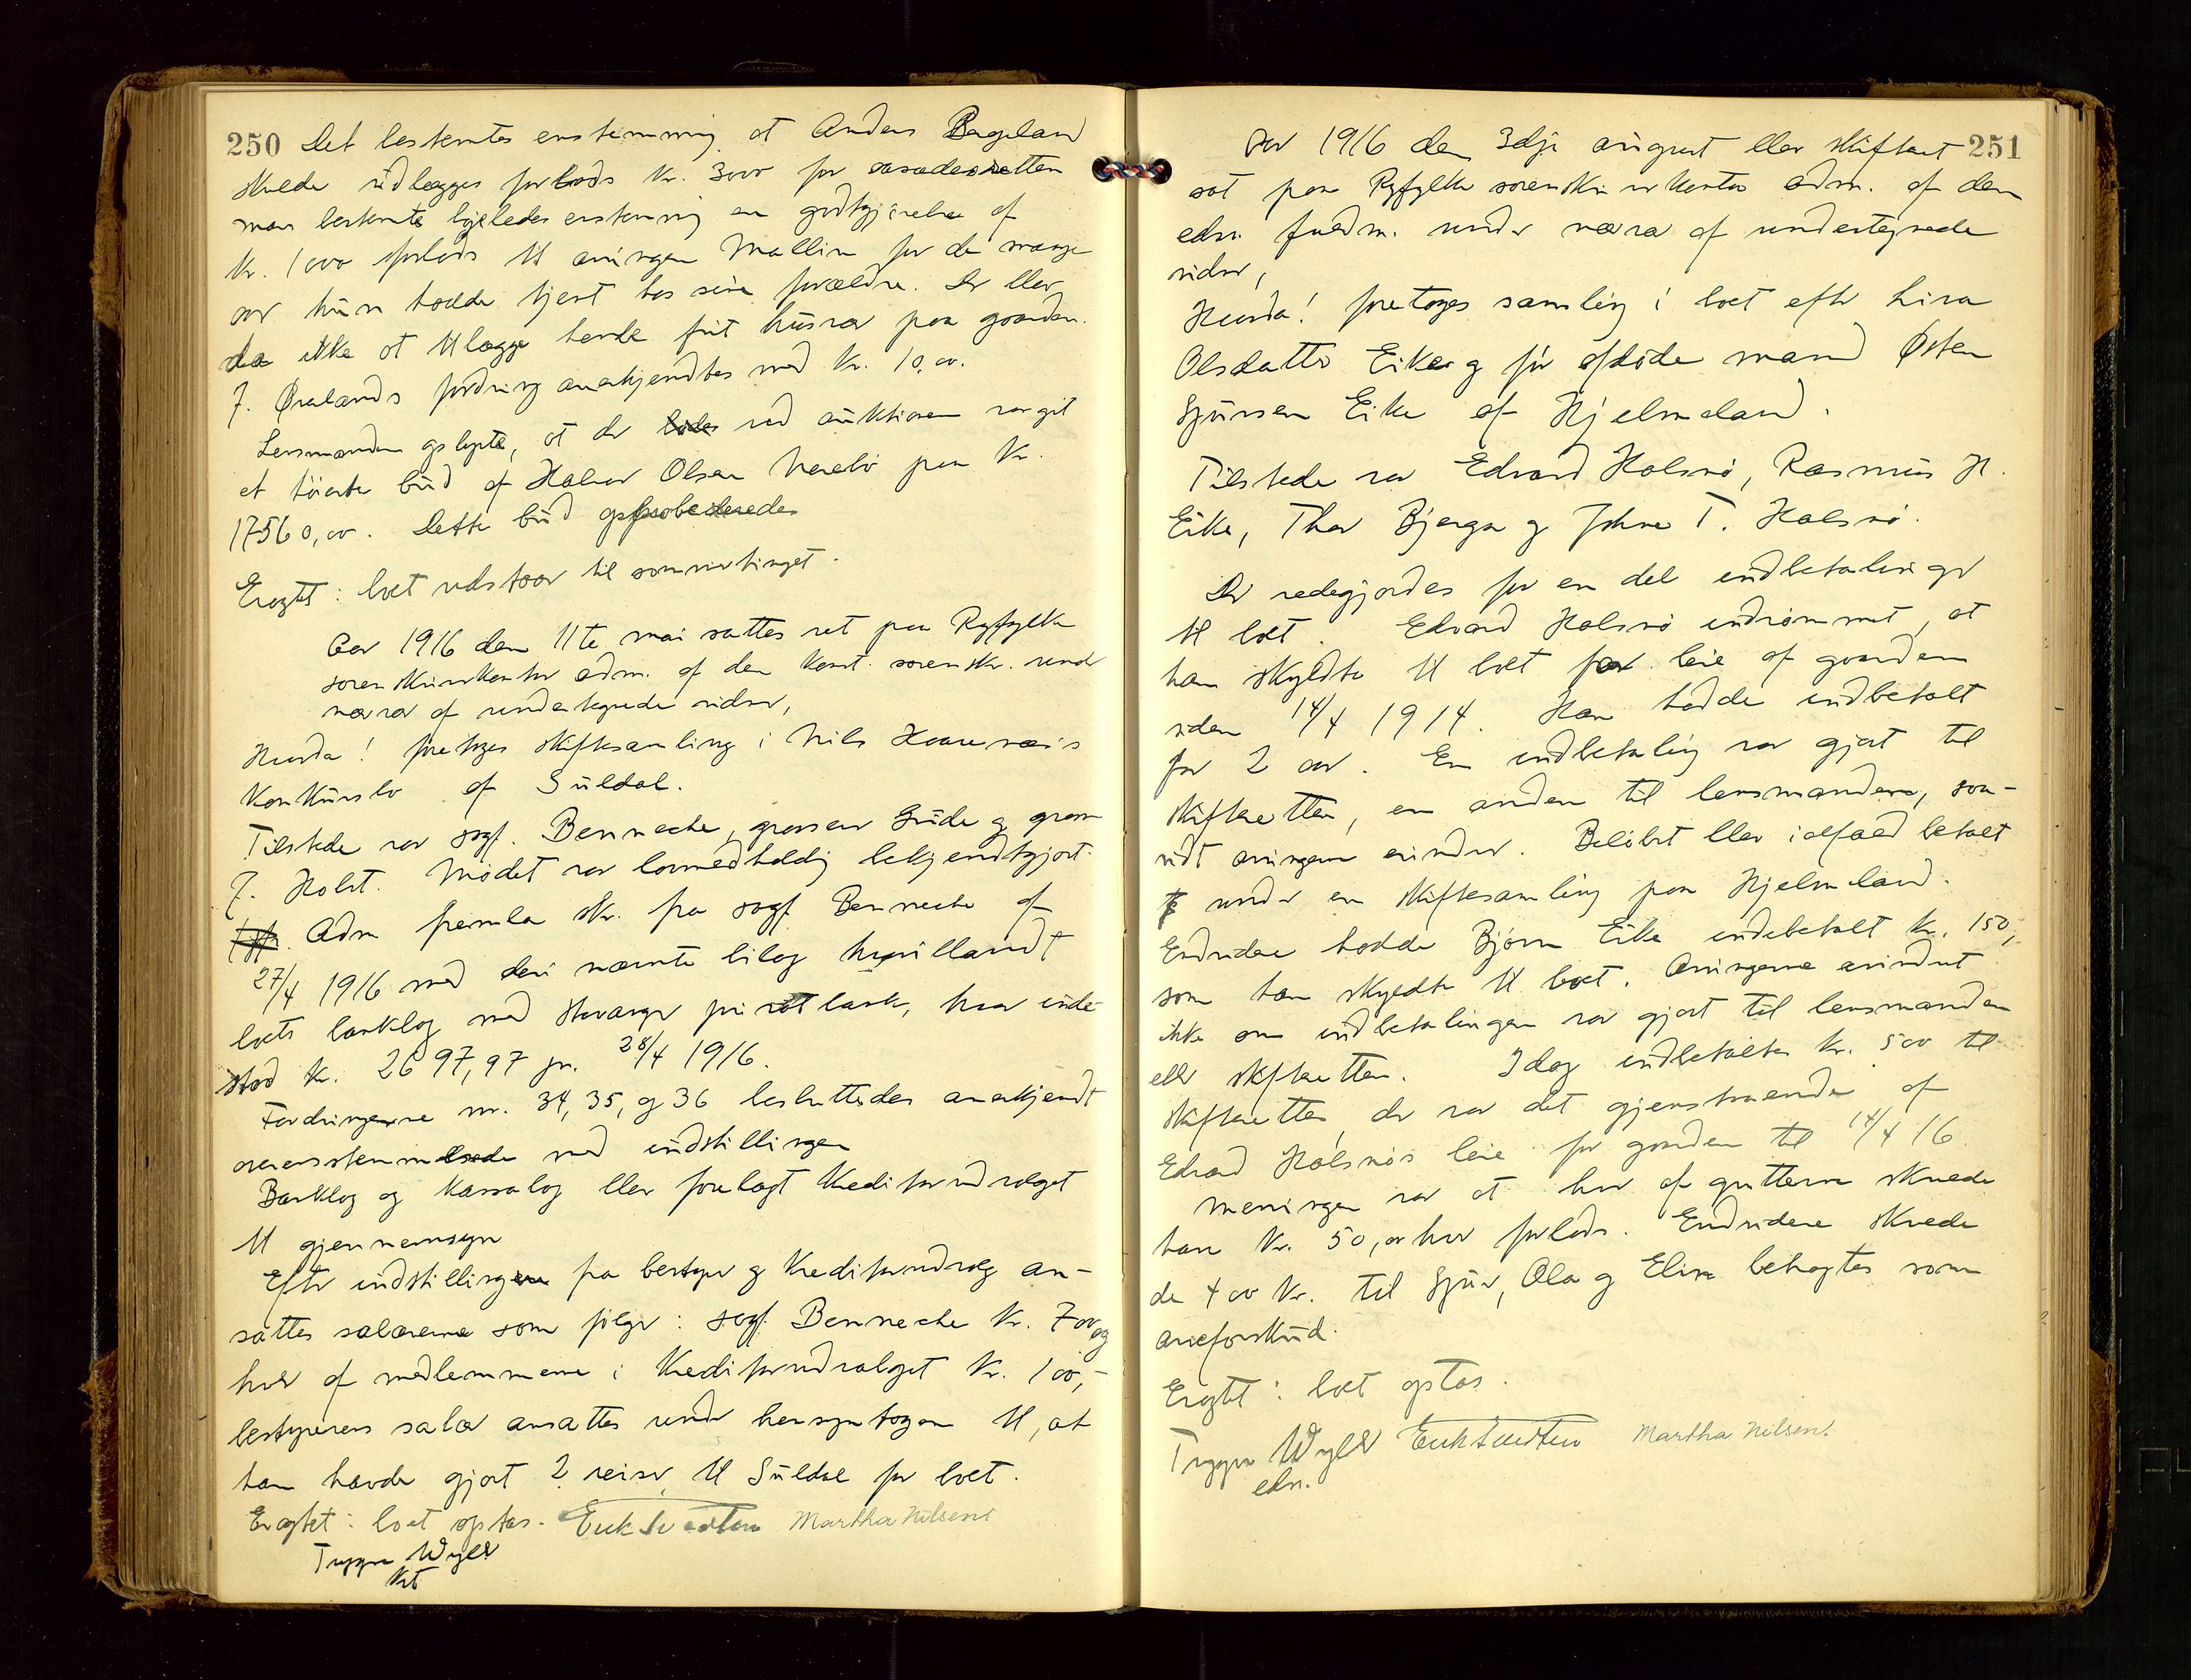 250 Det bestemtes enstemmig at Anders Bageland
skulde udlægges forlods kr. 3000 for aasædesretten
man bestemte ligeledes enstemmig en godtgjørelse af
kr. 1000 forlods til arvingen Mallin for de mange
aar hun hadde tjent hos sine forældre. Der blev
da ikke at tillægge hende frit husvær paa gaarden.
J. Øvalands fordring anerkjendtes med kr. 10,00.
Lensmanden oplyste, at der ved auktionen var git
et høieste bud af Halvor Olsen paa kr.
17560,00. Dette bud approberedes
Eragtet: boet udstaar til sommertinget.
Aar 1916 den 11te mai sattes ret paa Ryfylke
sorenskriverkontor adm. af den konst. sorenskr. under
nærvær af undertegnede vidner,
Hvorda! foretoges skiftesamling i Nils Havrenæs's
konkursbo af Suldal.
Tilstede var sagf. Benneche, grosserer Gude og grosserer
J. Holst. Mødet var lovmedholdig bekjendtgjort.
Adm fremla skr. fra sagf. Benneche af
27/4 1916 med deri nævnte bilag hvoriblandt
boets bankbog med Stavanger privatbank, hvor inde-
stod kr. 2697,97 pr. 28/4 1916.
Fordringerne nr. 34, 35, og 36 besluttedes anerkjendt
overensstemmende med indstillingen
Bankbog og kassabog blev forelagt kreditorudvalget
til gjennemsyn
Efter indstilling fra bestyrer og kreditorudvalg an-
sattes salærerne som følger: sagf. Benneche kr. 700 og
hver af medlemmerne i kreditorudvalget kr. 100,-
bestyrerens salær ansattes under hensyntagen til, at
han havde gjort 2 reiser til Suldal for boet.
Eragtet: boet optas. Martha Nilsen
Trygve Wyller
kst
Aar 1916 den 3dje august blev skifteret 251
sat paa Ryfylke sorenskriverkontor adm. af den
edsv. fuldm. under nærvær af undertegnede
vidner,
Hvorda! foretoges samling i boet efter
Olsdatter Eike og før afdøde mand Østen
Sjursen Eike af Hjelmeland.
Tilstede var Edvard Halsnø, Rasmus H.
Eike, Thor Bjerga og Johne T. Halsnø.
Der redegjordes for en del indbetalinger
til boet. Edvard Halsnø indrømmet, at
han skyldte til boet for leie af gaarden
siden 14/4 1914. Han hadde indbetalt
for 2 aar. En indbetaling var gjort til
skifteretten, en anden til lensmanden, saa-
vidt arvingerne erindrer. Beløbet blev ialfald betalt
under en skiftesamling paa Hjelmeland.
Endvidere hadde Bjørn Eike indbetalt kr. 150,
som han skyldte til boet. Arvingerne erindret
ikke om indbetalingen var gjort til lensmanden
eller skifteretten. Idag indbetaltes kr. 500 til
skifteretten, der var det gjenstaaende af
Edvard Halsnøs leie for gaarden til 14/4 16.
Meningen var at hver af gutterne skulde
have kr. 50,00 hver forlods. Endvidere skulde
de 400 kr. til Sjur, Ola og Elise betragtes som
arveforskud.
Eragtet: boet optas.
Trygve Wyller Martha Nilsen.
edsv.